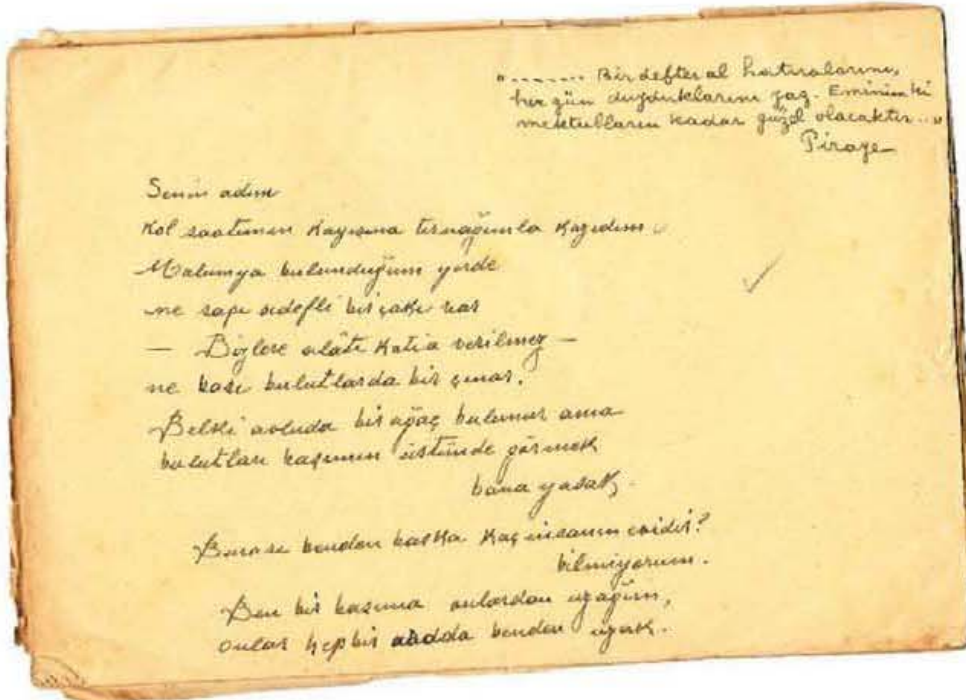 "....... Bir defter al hatıralarını,
her gün duyduklarını yaz. Eminim ki
mektubların kadar güzel olacaktır..."
Piraye
Senin adını
Kol saatımın kayışına tırnağımla kazıdım.
Malum ya bulunduğum yerde
ne sapı sedefli bir çakı var
— Bizlere alâtı katıa verilmez —
ne başı bulutlarda bir çınar.
Belki avluda bir ağaç bulunur ama
bulutları başımın üstünde görmek
bana yasak.
Burası benden başka kaç insanın evidir?
bilmiyorum.
Ben bir başıma onlardan uzağım,
onlar hep bir adda benden uzak.